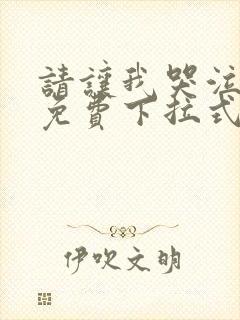 請讓我哭泣
免費下拉式
伊吹文明